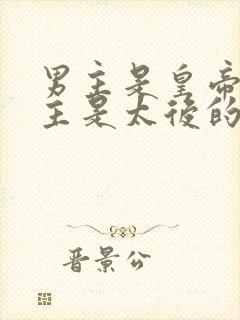 男主是皇帝
主是太後的
晋景公